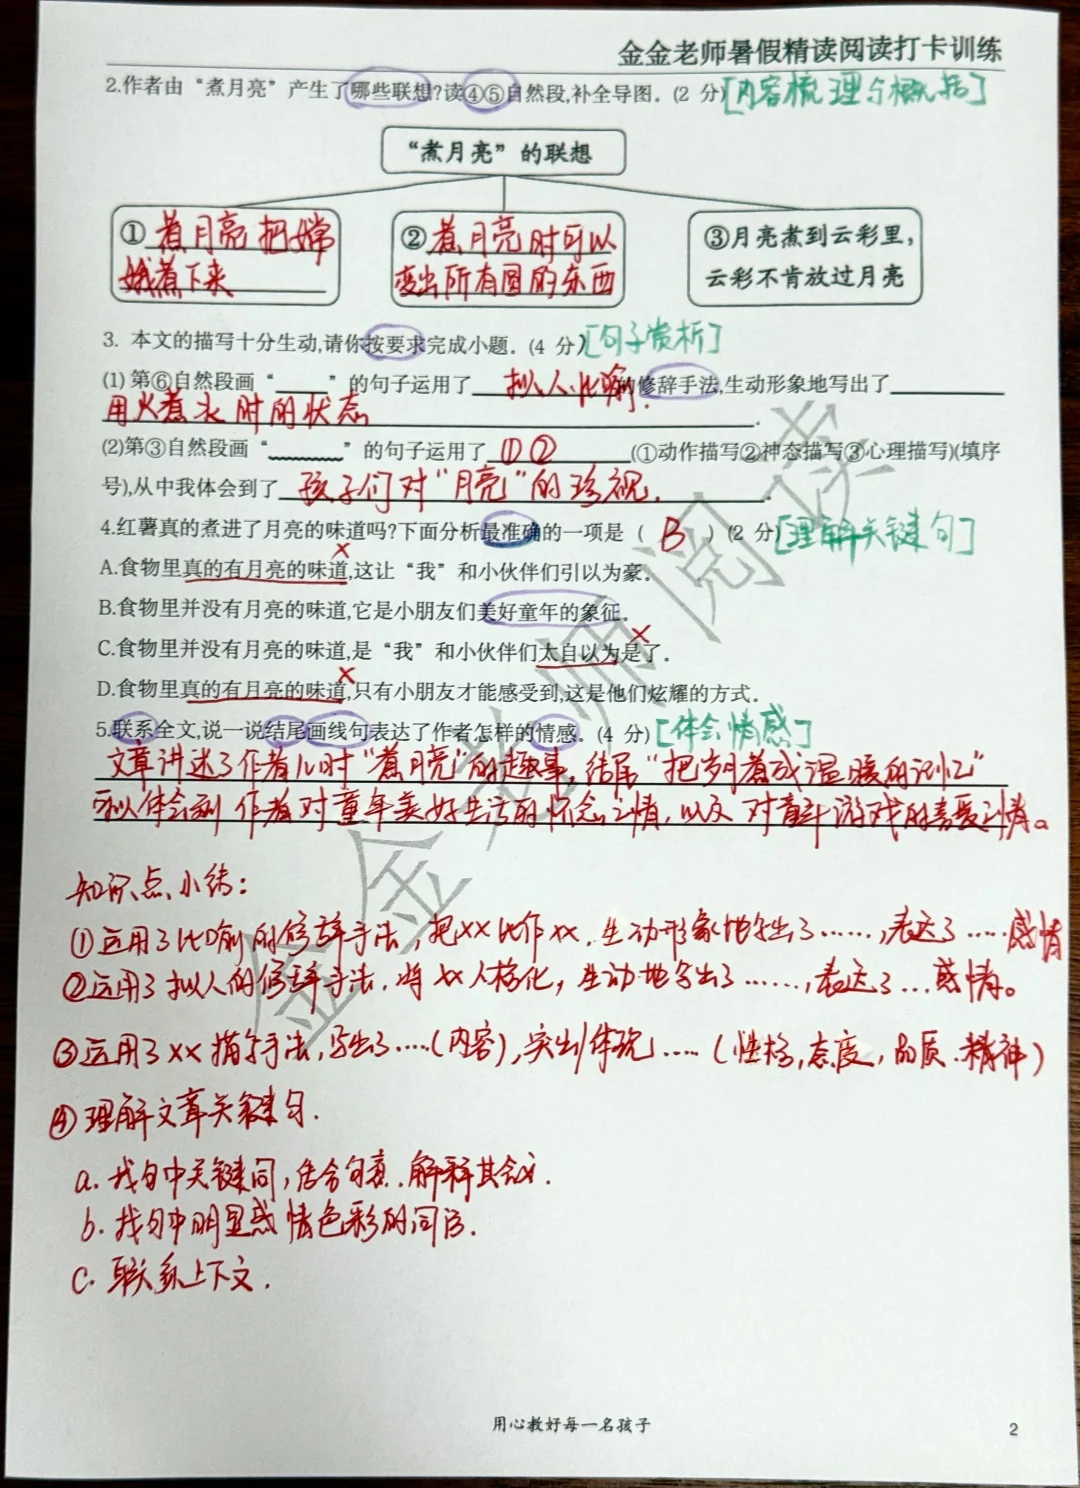 金金老师暑假精读阅读打卡训练
2.作者由“煮月亮”产生了哪些联想?读④⑤自然段,补全导图.(2 分)[内容梳理与概括]
“煮月亮”的联想
①煮月亮把嫦
娥煮下来
②煮月亮时可以
变出所有圆的东西
③月亮煮到云彩里,
云彩不肯放过月亮
3. 本文的描写十分生动,请你按要求完成小题.(4 分)[句子赏析]
(1) 第⑥自然段画“____”的句子运用了 拟人、比喻 的修辞手法,生动形象地写出了
用火煮水时的状态.
(2)第③自然段画“﹏﹏”的句子运用了 ①② (①动作描写②神态描写③心理描写)(填序
号),从中我体会到了 孩子们对“月亮”的珍视.
4.红薯真的煮进了月亮的味道吗?下面分析最准确的一项是 ( B ) (2 分)[理解关键句]
A.食物里真的有月亮的味道,这让“我”和小伙伴们引以为豪.
B.食物里并没有月亮的味道,它是小朋友们美好童年的象征.
C.食物里并没有月亮的味道,是“我”和小伙伴们太自以为是了.
D.食物里真的有月亮的味道,只有小朋友才能感受到,这是他们炫耀的方式.
5.联系全文,说一说结尾画线句表达了作者怎样的情感.(4 分)[体会情感]
文章讲述了作者儿时“煮月亮”的趣事,结尾“把岁月煮成温暖的记忆”
可以体会到作者对童年美好生活的怀念之情,以及对童年游戏的喜爱之情。
知识点小结:
①运用了比喻的修辞手法,把xx比作xx,生动形象地写出了……,表达了……感情
②运用了拟人的修辞手法,将xx人格化,生动地写出了……,表达了…感情。
③运用了xx描写手法,写出了……(内容),突出/体现……(性格,态度,品质、精神)
④理解文章关键句.
a.找句中关键词,结合句意,解释其含义.
b.找句中明显感情色彩的词语.
c.联系上下文.
金金老师阅读
用心教好每一名孩子
2